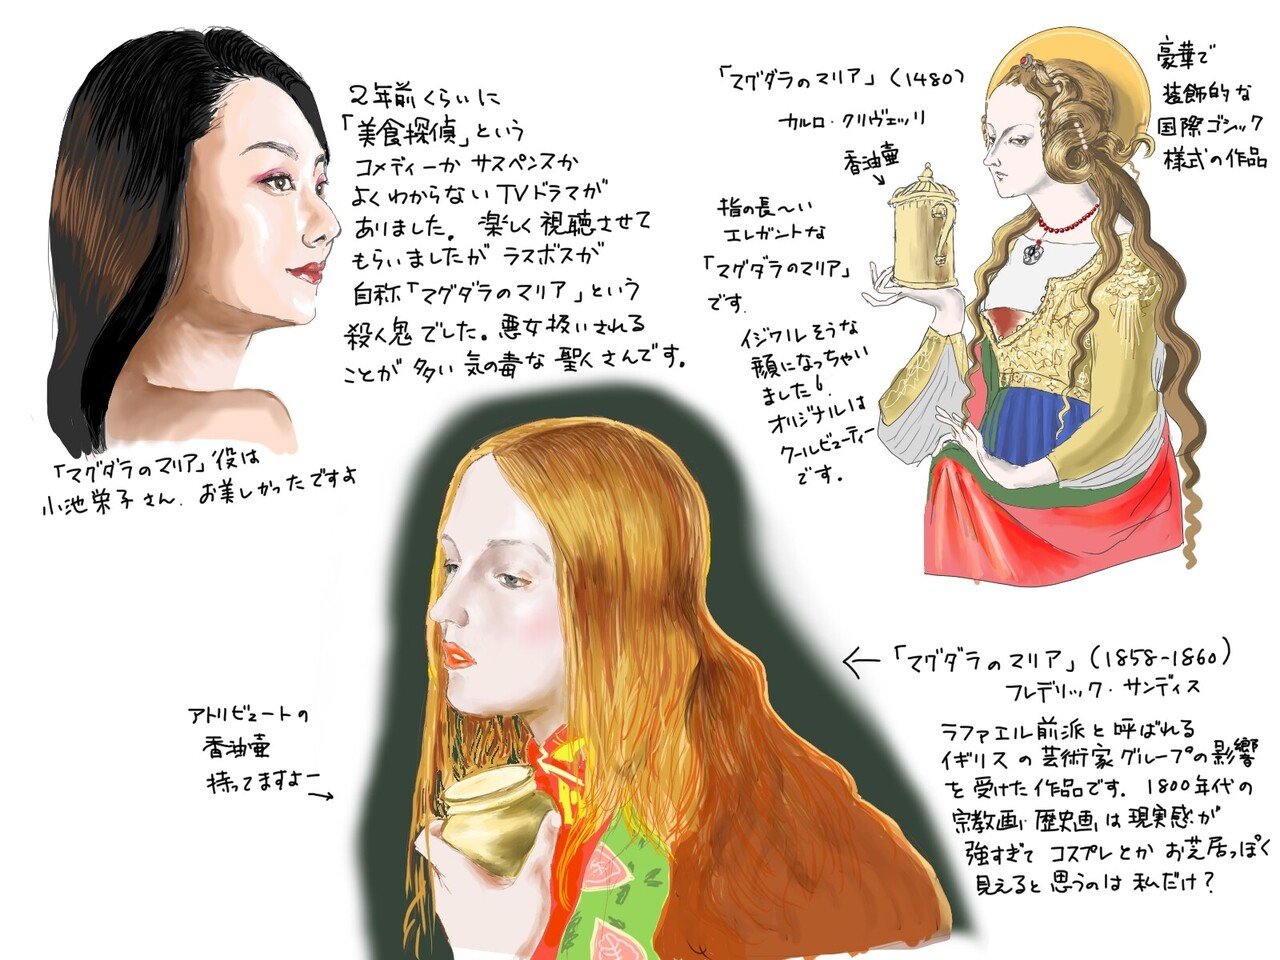 2年前くらいに
「美食探偵」という
コメディーか サスペンスか
よくわからない TVドラマが
ありました。楽しく視聴させて
もらいましたが ラスボスが
自称「マグダラのマリア」という
殺人鬼でした。悪女扱いされる
ことが 多い 気の毒な 聖人さんです。
「マグダラのマリア」役は
小池栄子さん. お美しかったですよ
「マグダラのマリア」(1480)
カルロ・クリヴェッリ
香油壷
豪華で
装飾的な
国際ゴシック
様式の作品
指の長〜い
エレガントな
「マグダラのマリア」
です.
イジワルそうな
顔になっちゃい
ました
オリジナルは
クールビューティー
です.
アトリビュートの
香油壷
持ってますよー
「マグダラのマリア」(1858-1860)
フレデリック・サンディス
ラファエル前派と呼ばれる
イギリスの芸術家グループの影響
を受けた作品です. 1800年代の
宗教画, 歴史画は現実感が
強すぎて コスプレとか お芝居っぽく
見えると 思うのは 私だけ?